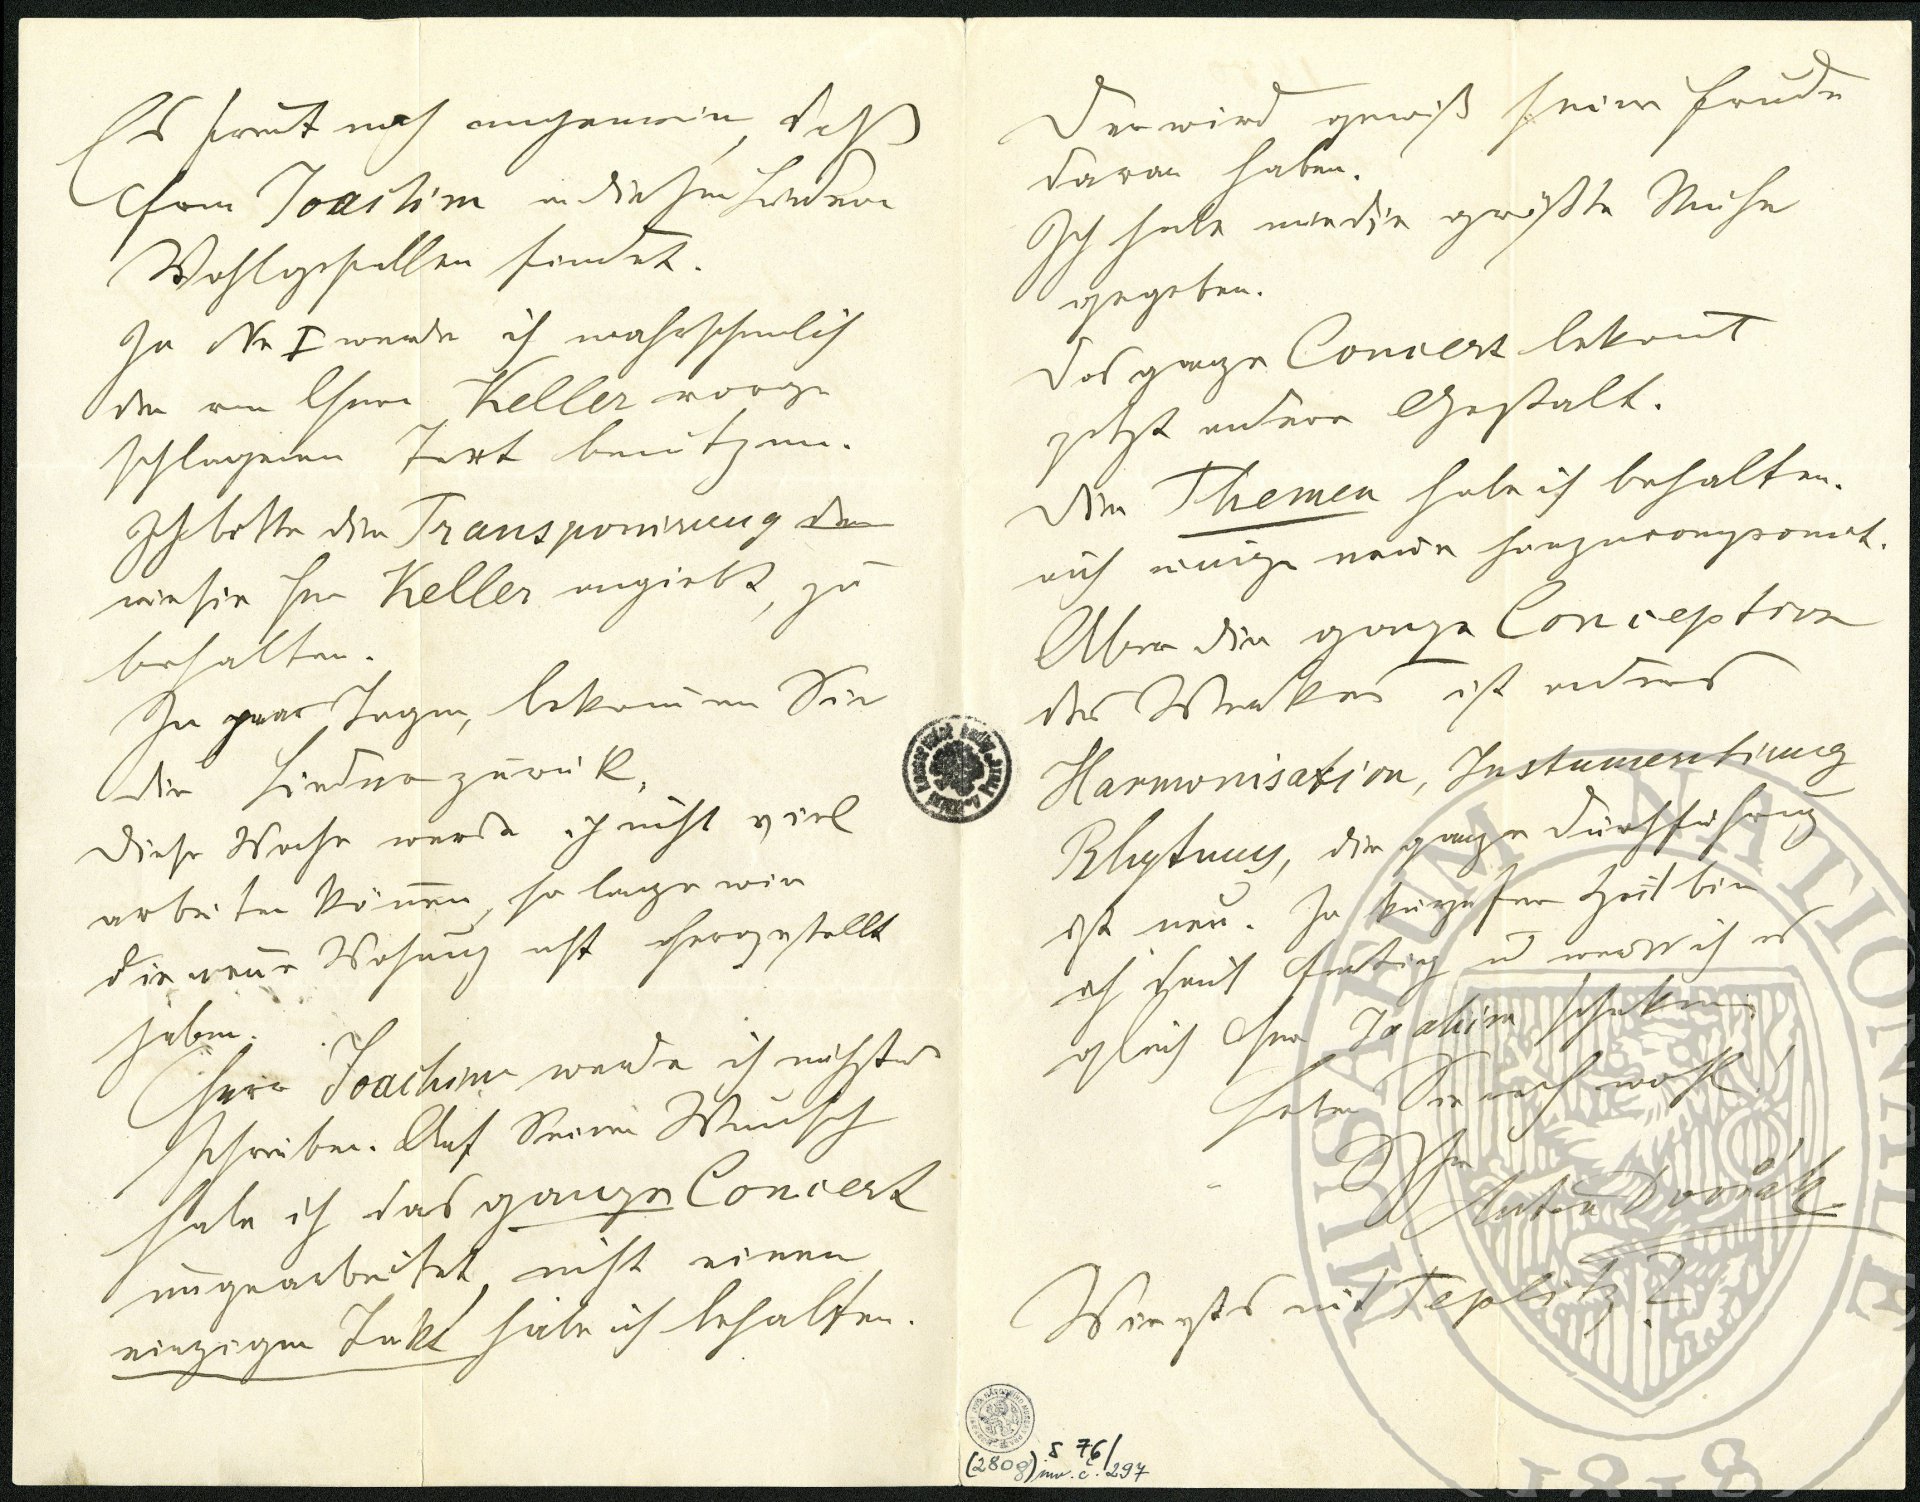 Es freut mich ungemein, daß
Herrn Joachim an diesen Liedern
Wohlgefallen findet.
In No I werde ich wahrscheinlich
den von Herrn Keller vorge
schlagenen Text benützen.
Ich bitte die Transponirung
wie sie Herr Keller angiebt, zu
behalten.
In paar Tagen, bekommen Sie
die Lieder zurück.
Diese Woche werde ich nicht viel
arbeiten können, so lange wir
die neue Wohnung nicht hergestellt
haben.
Herr Joachim werde ich nächstens
schreiben. Auf Seinen Wunsch
habe ich das ganze Concert
umgearbeitet, nicht einen
einzigen Takt habe ich behalten.
Der wird gewiß seine Freude
daran haben.
Ich habe mir die größte Mühe
gegeben.
Das ganze Concert bekomt
jetzt andere Gestalt.
Die Themen habe ich behalten.
auch einige neue hinzucomponirt.
Aber die ganze Conception
des Werkes ist anders
Harmonisation, Instumentirung
Rhytmus, die ganze Durchführung
ist neu. In kürzester Zeit bin
ich damit fertig u werde ich es
gleich Herr Joachim schicken.
Leben Sie recht wohl!
Ihr
Antonín Dvořák
Wie gehts mit Teplitz?
(280g) S 76/
inv. č. 297
MUSAEUM NATIONALE
1818